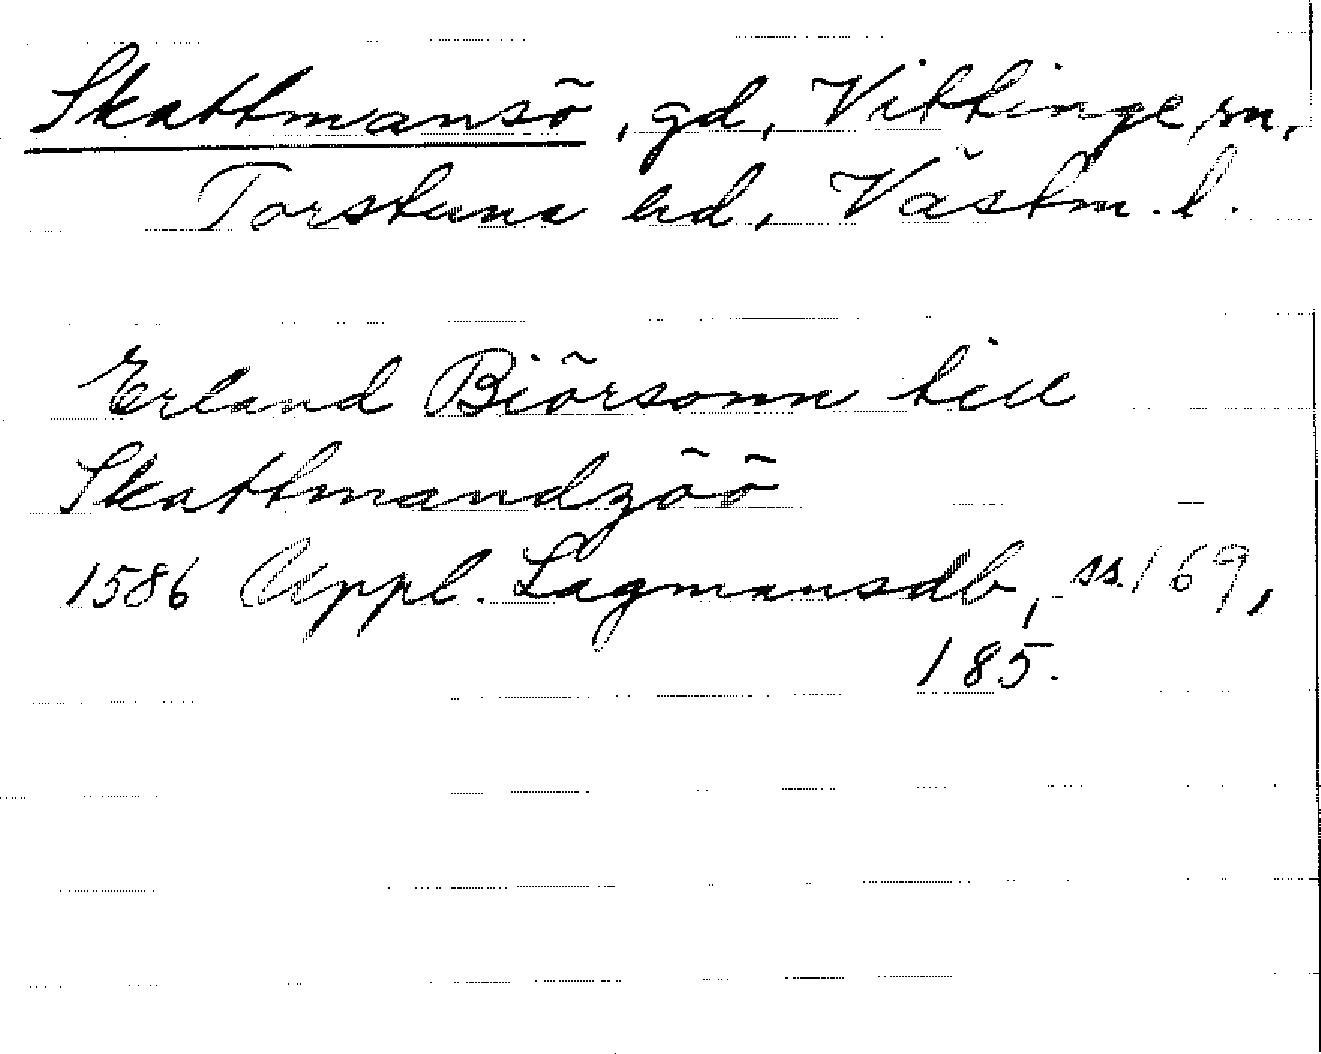 Skattmansö, gd, Vittinge sn,
Torstuna hd, Västm. l.
Erland Biörsonn till
Skattmandzöö
1586 Uppl. Lagmansdb, ss. 169,
185.